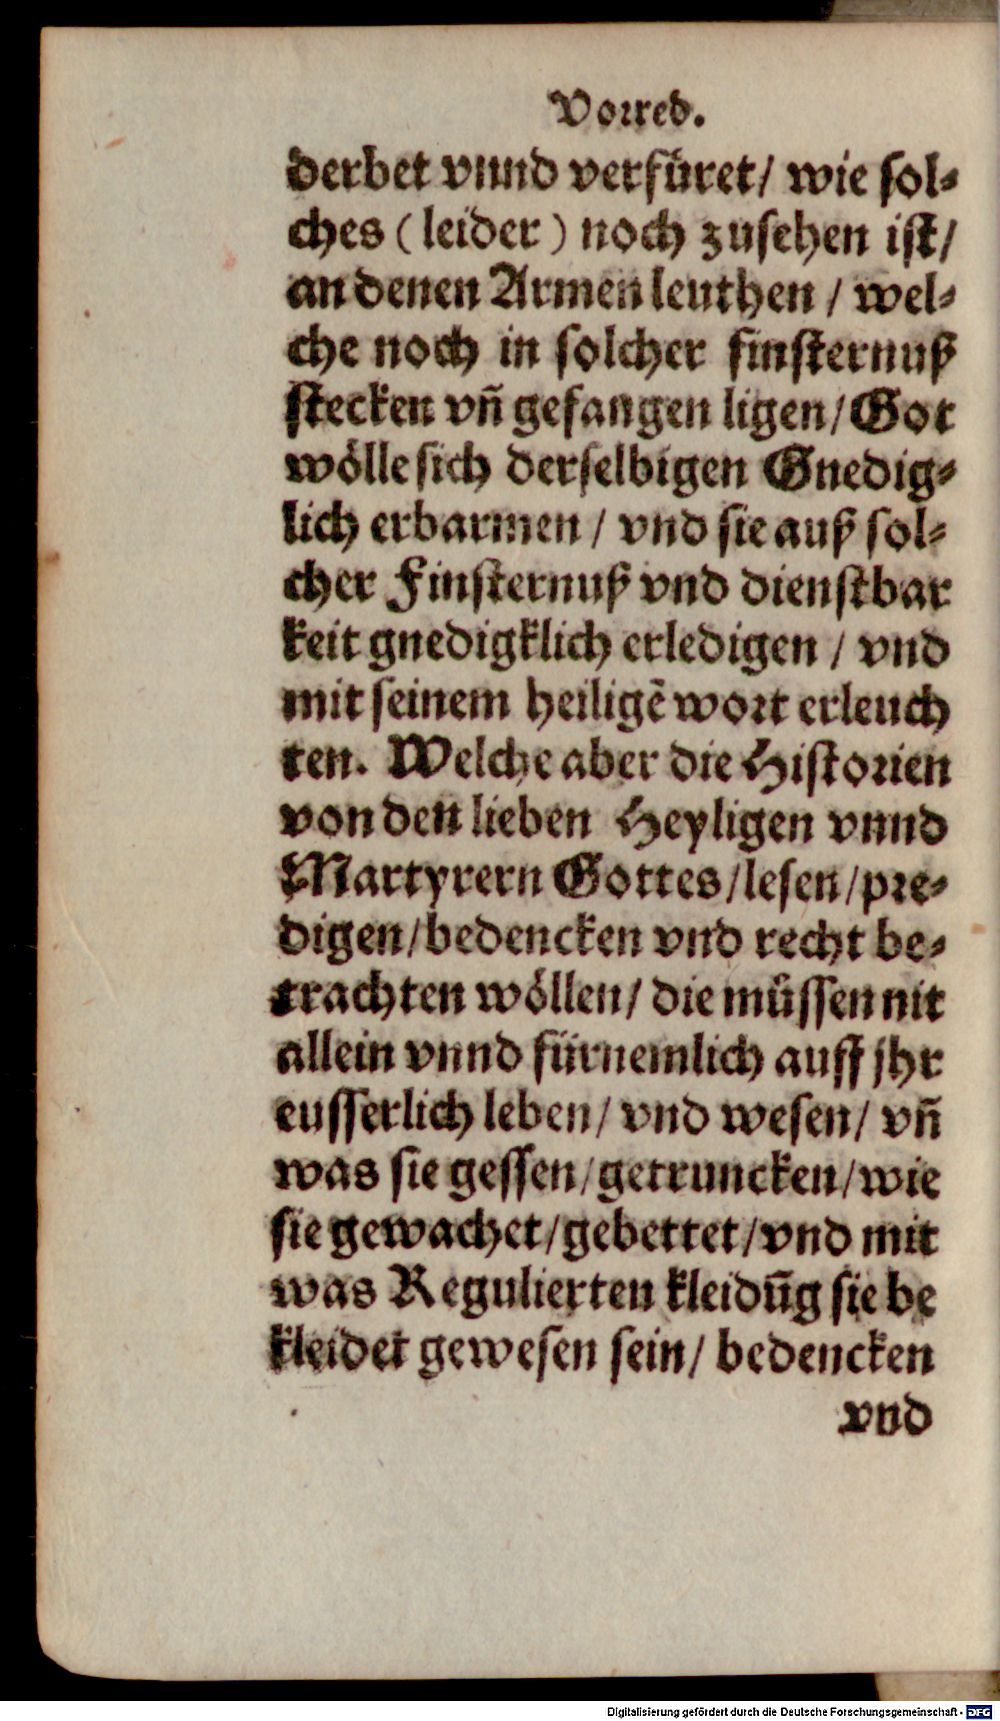 Vorred.
derbet vnnd verfüret/ wie sol⸗
ches (leider) noch zusehen ist/
an denen Armen leuthen / wel⸗
che noch in solcher finsternuß
stecken vñ gefangen ligen/ Got
wölle sich derselbigen Gnedig⸗
lich erbarmen / vnd sie auß sol⸗
cher Finsternuß vnd dienstbar
keit gnedigklich erledigen / vnd
mit seinem heiligē wort erleuch
ten. Welche aber die Historien
von den lieben Heyligen vnnd
Martyrern Gottes/ lesen/ pre⸗
digen/ bedencken vnd recht be⸗
trachten wöllen/ die müssen nit
allein vnnd fürnemlich auff jhr
eusserlich leben/ vnd wesen/ vñ
was sie gessen/ getruncken/ wie
sie gewachet/ gebettet/ vnd mit
was Regulierten kleidūg sie be
kleidet gewesen sein/ bedencken
vnd
Digitalisierung gefördert durch die Deutsche Forschungsgemeinschaft - DFG